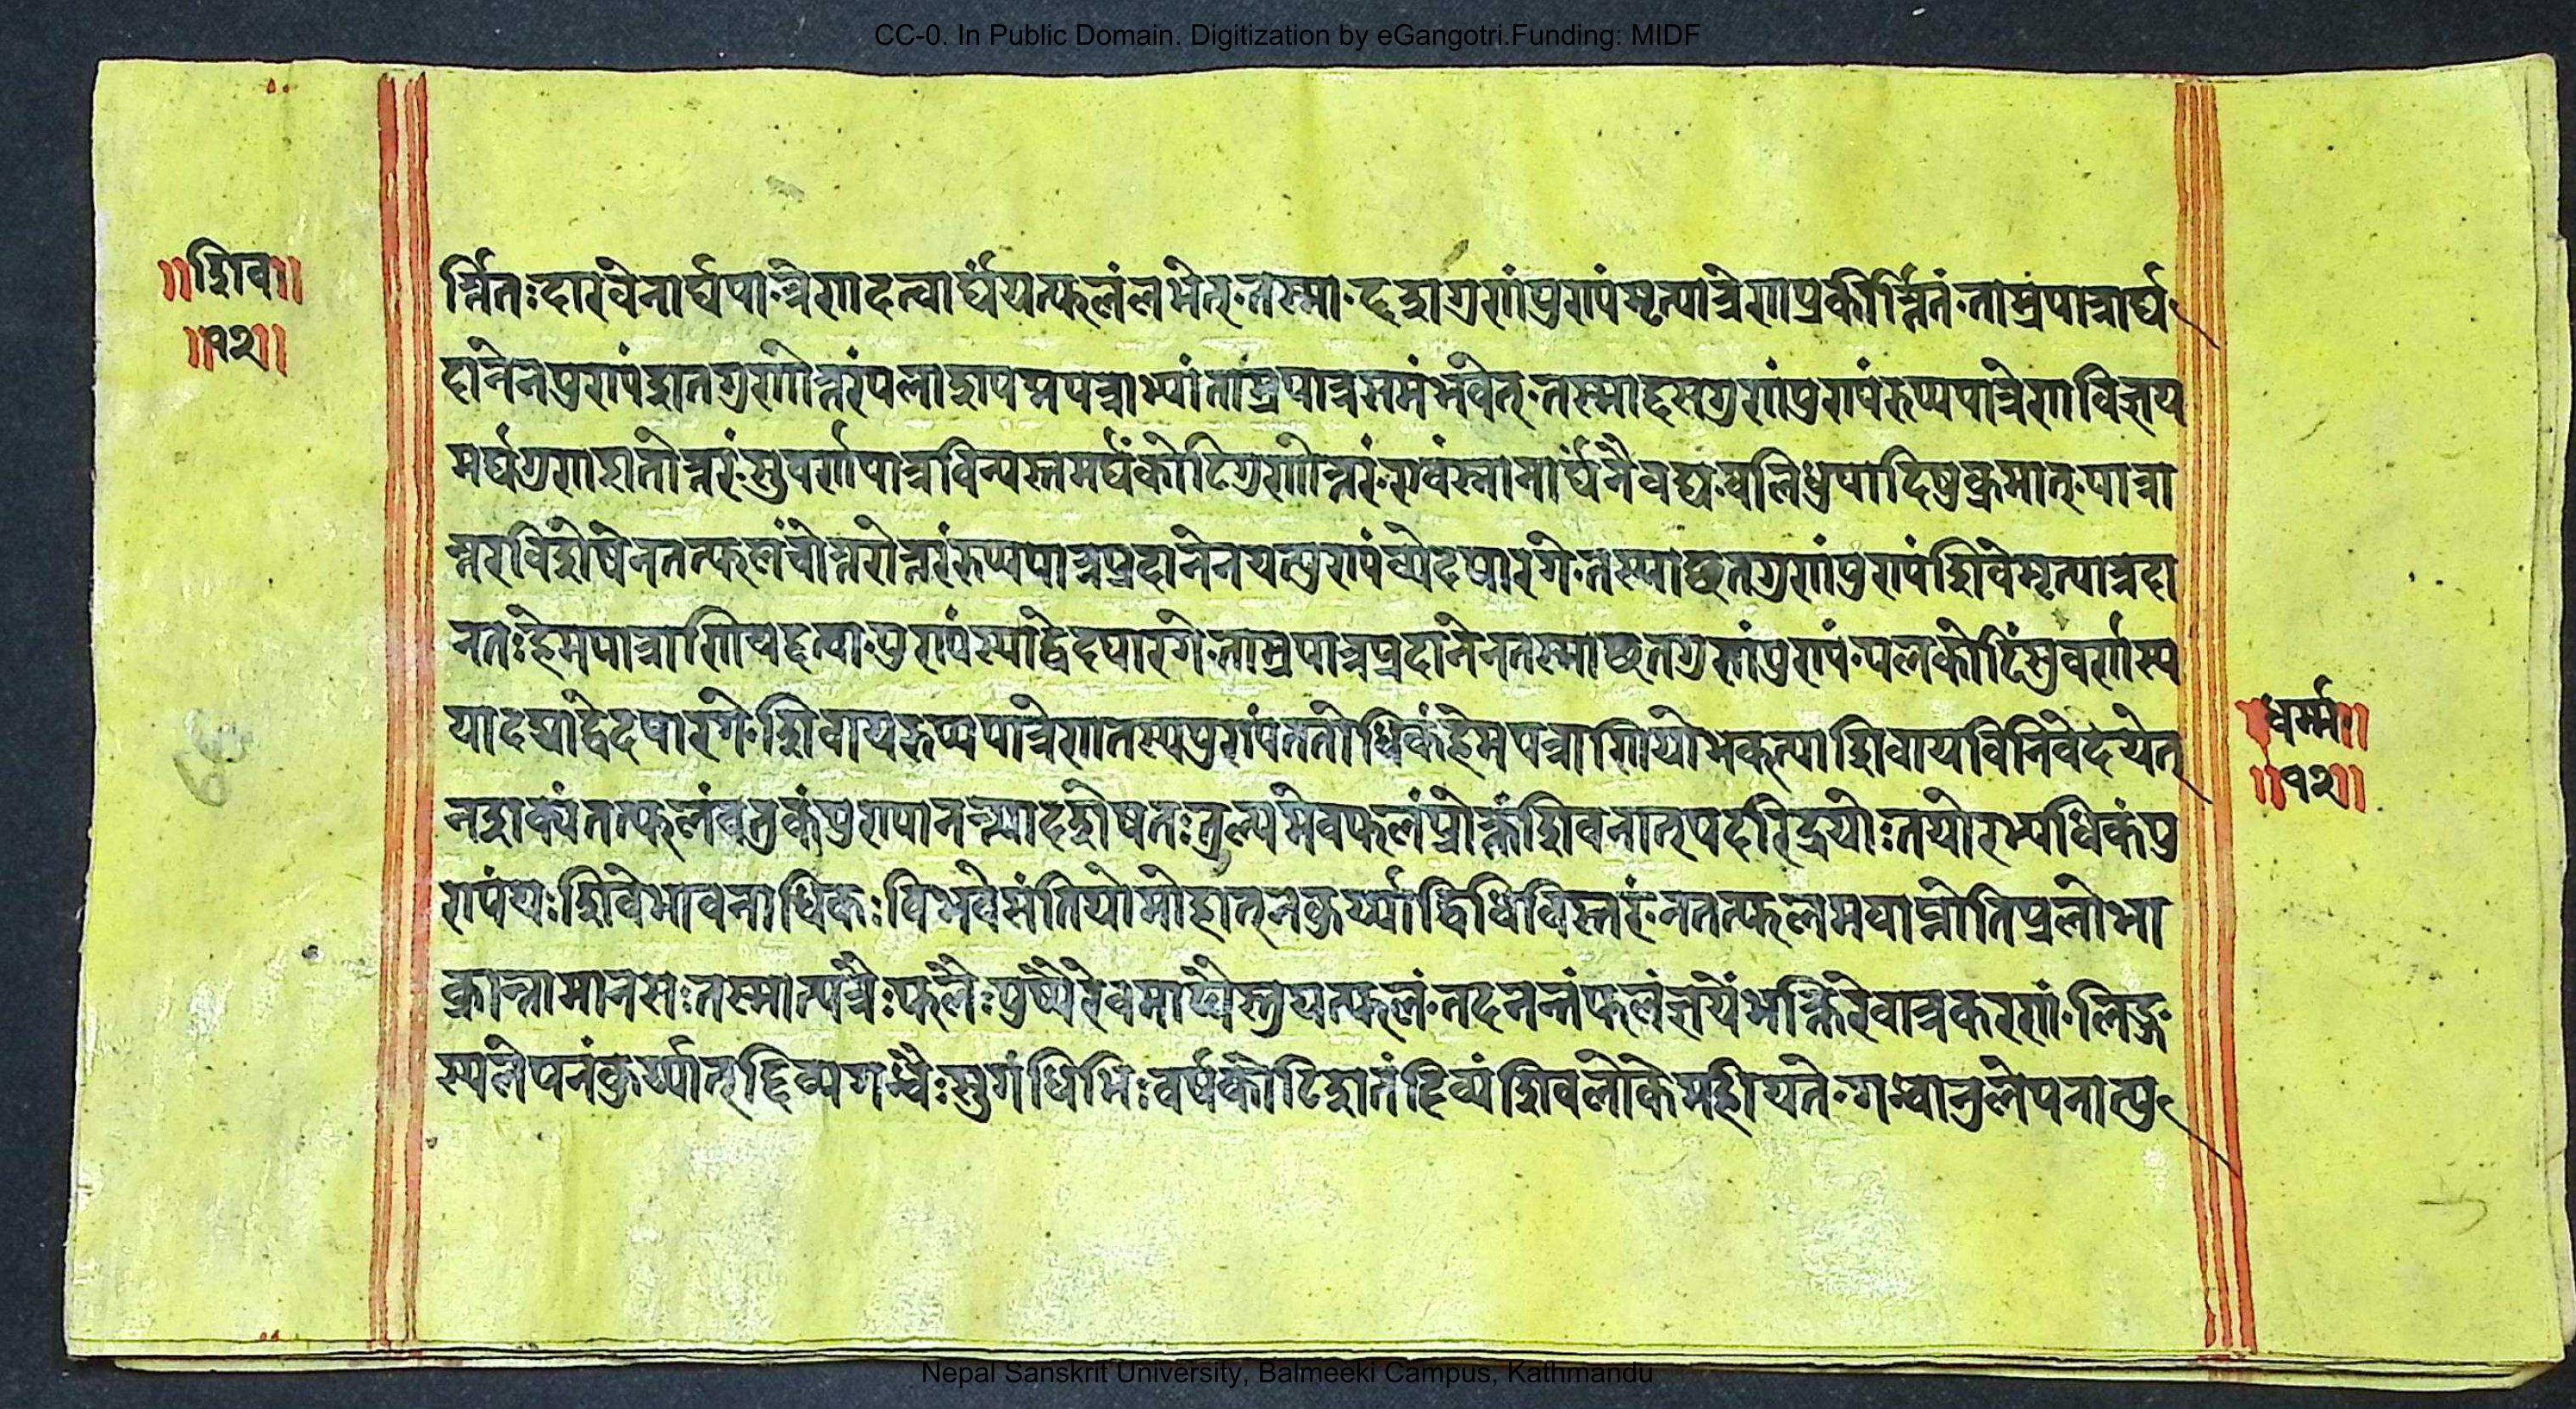 CC-0. In Public Domain. Digitization by eGangotri.Funding: MIDF
॥शिव॥
॥१२॥
र्त्तितः दारवेनार्घपात्रेणदत्वार्घंयत्फलंलभेत् तस्माद्दशगुणंपुण्यंमृत्पात्रेणप्रकीर्त्तितं ताम्रपात्रार्घ्य
दानेनपुण्यंशतगुणोत्तरंपलाशपद्मपत्राभ्यांताम्रपात्रसमंभवेत् तस्माद्दसगुणंपुण्यंरुप्यपात्रेणविज्ञय
मर्घगुणशतोत्तरं सुवर्णपात्रविन्यस्तमर्घंकोटिगुणोत्तरं एवंस्नानार्घंनैवद्य बलिधुपादिषुक्रमात् पात्रा
न्तरविशेषेनतत्फलंचोत्तरोत्तरंरुप्यपात्रप्रदानेनयत्पुण्यंव्येदपारगे तस्माच्छतगुणंपुण्यंशिवेमृत्पात्रदा
नतः हेमपात्राणियद्दत्वा पुण्यंस्याद्वेदपारगे ताम्रपात्रप्रदानेनतस्माच्छतगुणंपुण्यं पलकोटिंसुवर्णस्य
यादद्याद्वेदपारगे शिवायरुप्यपात्रेणतस्यपुण्यंततोधिकंहेमपत्राणियोभक्त्याशिवायविनिवेदयेत्
नशक्यंतत्फलंवतुकंपुण्यानन्त्यादशेषतः तुल्यमेवफलंप्रोक्तंशिवनात्पदरिद्रयोः तयोरभ्यधिकंपु
ण्यंयः शिवेभावनाधिकः विभवेसंतियोमोहात्नकुर्य्याद्विधिविस्तरं नतत्फलमवाप्नोतिप्रलोभा
क्रान्तामानसः तस्मात्पत्रैः फलैः पुष्पैरेवमाप्येस्तुयत्फलं तदनन्तंफलंज्ञेयंभक्तिरेवात्रकरणं लिङ्ग
स्यलेपनंकुर्य्यात्द्दिव्यगन्धैः सुगंधिभिः वर्षकोटिशतंदिव्यंशिवलोकेमहीयते गन्धानुलेपनात्पु
धर्म्म॥
॥१२॥
Nepal Sanskrit University, Balmeeki Campus, Kathmandu